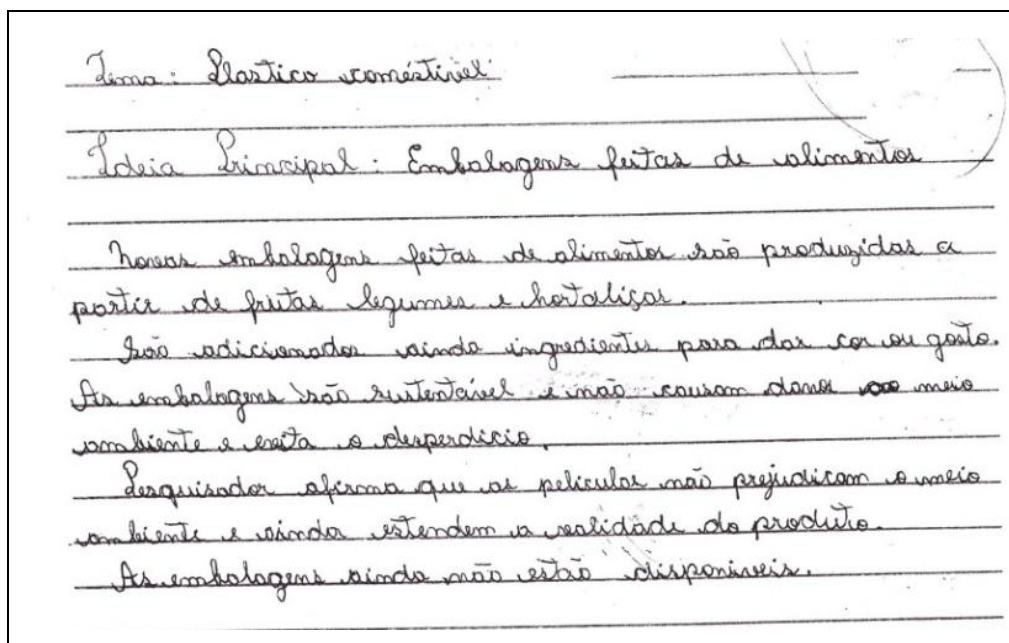 Tema: Plastico coméstivel
Ideia Principal: Embalagens feitas de alimentos
Novas embalagens feitas de alimentos são produzidas a
partir de frutas legumes e hortaliças.
São adicionados ainda ingredientes para dar cor ou gosto.
As embalagens são sustentável e não causam danos ao meio
ambiente e evita o desperdício.
Pesquisador afirma que as peliculas não prejudicam o meio
ambiente e ainda estendem a validade do produto.
As embalagens ainda não estão disponiveis.